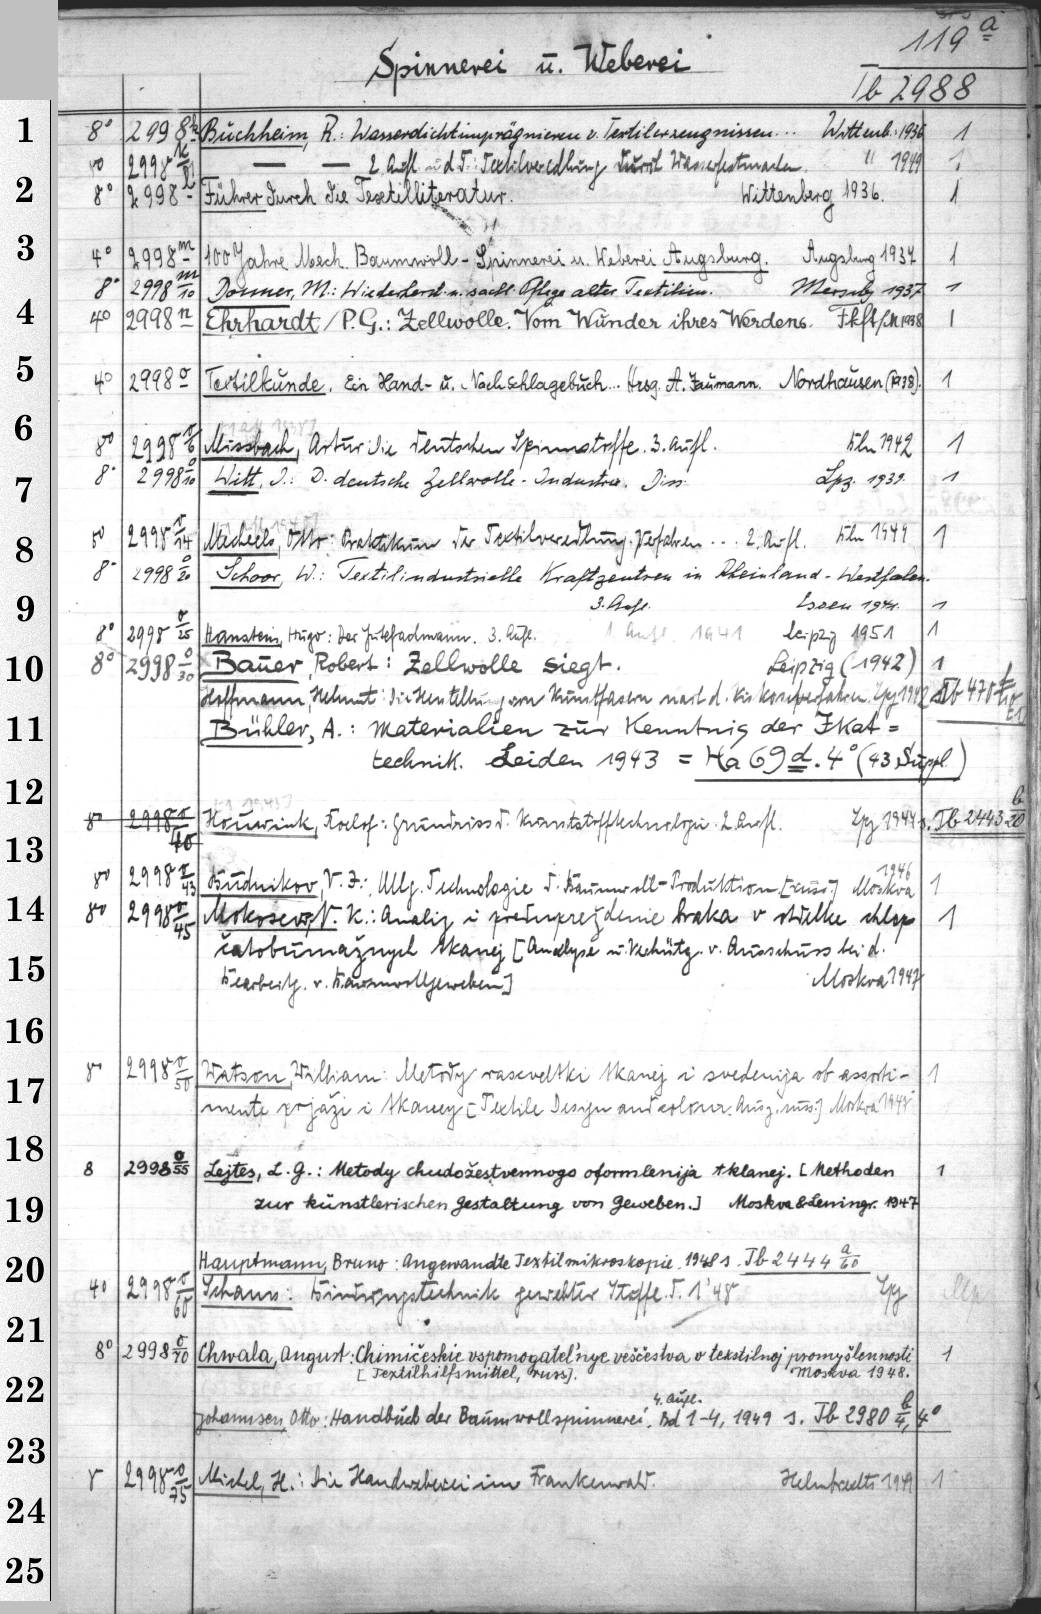 119 a
Spinnerei u. Weberei
Tb 2988
1 8° 2998 k/2 Buchheim, R.: Wasserdichtimprägnieren v. Textilerzeugnissen... Wittenb. 1936 1
8° 2998 — — 2. Aufl. u. d. T.: Textilveredlung durch Wasserfestmachen. " 1949 1
2 8° 2998 l Führer durch die Textilliteratur. Wittenberg 1936. 1
3 4° 2998 m 100 Jahre Mech. Baumwoll-Spinnerei u. Weberei Augsburg. Augsburg 1937 1
8° 2998 m/10 Donner, M.: Wiederherst. u. sachl. Pflege alter Textilien. Merseb. 1937 1
4 4° 2998 n Ehrhardt, P. G.: Zellwolle. Vom Wunder ihres Werdens. Fkft/M 1938 1
5 4° 2998 o Textilkunde. Ein Hand- u. Nachschlagebuch... Hrsg. A. Jaumann. Nordhausen (1938). 1
6 8° 2998 o/6 Missbach, Artur: Die deutschen Spinnstoffe. 3. Aufl. Bln 1942 1
7 8° 2998 o/10 Witt, J.: D. deutsche Zellwolle-Industrie. Diss. Lpz. 1939. 1
8 8° 2998 o/14 Mecheels, Otto: Praktikum der Textilveredlung. Verfahren ... 2. Aufl. Bln 1949 1
8° 2998 o/20 Schoor, W.: Textilindustrielle Kraftzentren in Rheinland-Westfalen.
9 3. Aufl. Essen 1941. 1
8° 2998 o/25 Hanstein, Hugo: Der Jutefachmann. 3. Aufl. 1 Aufl. 1941 Leipzig 1951 1
10 8° 2998 o/30 Bauer, Robert: Zellwolle siegt. Leipzig (1942) 1
Hoffmann, Helmut: Die Herstellung von Kunstfasern nach d. Viskoseverfahren. Lpz 1942 Tb 470
11 Bühler, A.: Materialien zur Kenntnis der Ikat=
technik. Leiden 1943 = Ha 69 d. 4° (43, Suppl.)
12
8° 2998 o/40 Houwink, Roelof: Grundriss d. Kunststofftechnologie. 2. Aufl. Lpz 1944 s. Tb 2443 b/20
13
8° 2998 o/43 Budnikov, V. I.: Allg. Technologie d. Baumwoll-Produktion [russ.] Moskva 1946 1
14 8° 2998 o/45 Mokosev, V. K.: Analiz i predupreždenie braka v otdelke chlop
čatobumažnych tkanej [Analyse u. Verhütg. v. Ausschuss bei d.
15 Bearbeitg. v. Baumwollgeweben] Moskva 1947
16
8° 2998 o/50 Watson, William: Metody rascvetki tkanej i svedenija ob assorti-
17 mente prjaži i tkanej [Textile Design and colour, Ausz. russ.] Moskva 1947
18
8 2998 o/55 Lejtes, L. G.: Metody chudožestvennogo oformlenija tkanej. [Methoden 1
19 zur künstlerischen Gestaltung von Geweben.] Moskva & Leningr. 1947
20 Hauptmann, Bruno: Angewandte Textilmikroskopie. 1948 s. Tb 2444 a/60
4° 2998 o/60 Schams: Bindungstechnik gewebter Stoffe. T. 1 '48 Lpz
21
8° 2998 o/70 Chwala, August: Chimičeskie vspomogatel'nye veščestva v tekstilnoj promyšlennosti 1
[Textilhilfsmittel, russ]. Moskva 1948.
22 Johannsen, Otto: Handbuch der Baumwollspinnerei, 4. Aufl. Bd 1-4, 1949 s. Tb 2980 b/4, 4°
23 8° 2998 o/75 Michel, H.: Die Handweberei im Frankenwald. Helmbrechts 1949 1
24
25